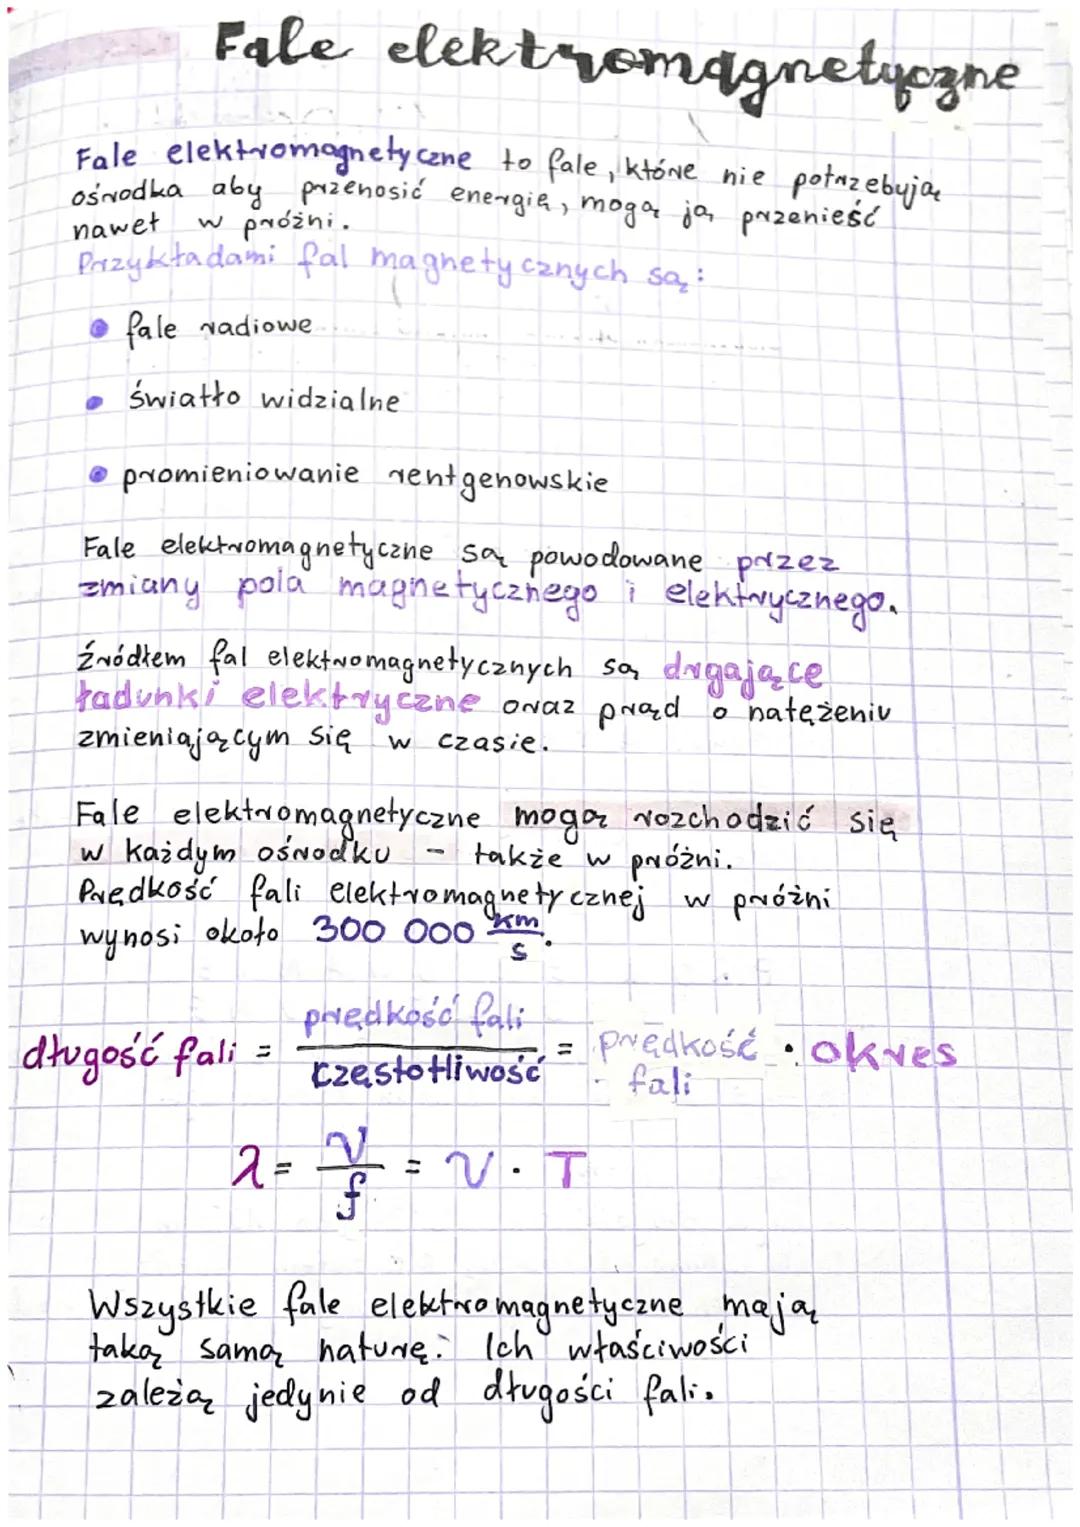 Fale elektromagnetyczne
Fale elektromagnetyczne to fale, które nie potrzebują
ośrodka aby przenosić energię, mogą ją przenieść
nawet w próżni.
Przykładami fal magnetycznych są:
• fale radiowe
• światło widzialne
• promieniowanie rentgenowskie
Fale elektromagnetyczne są powodowane przez
zmiany pola magnetycznego i elektrycznego.
źródłem fal elektromagnetycznych są drgające
ładunki elektryczne oraz prąd o natężeniu
zmieniającym się w czasie.
Fale elektromagnetyczne mogą rozchodzić się
w każdym ośrodku - także w próżni.
Prędkość fali elektromagnetycznej w próżni
wynosi około 300 000 km/s.
długość fali = prędkość fali / częstotliwość = prędkość fali · okres
λ = v/f = v · T
Wszystkie fale elektromagnetyczne mają
taką samą naturę. Ich właściwości
zależą jedynie od długości fali.